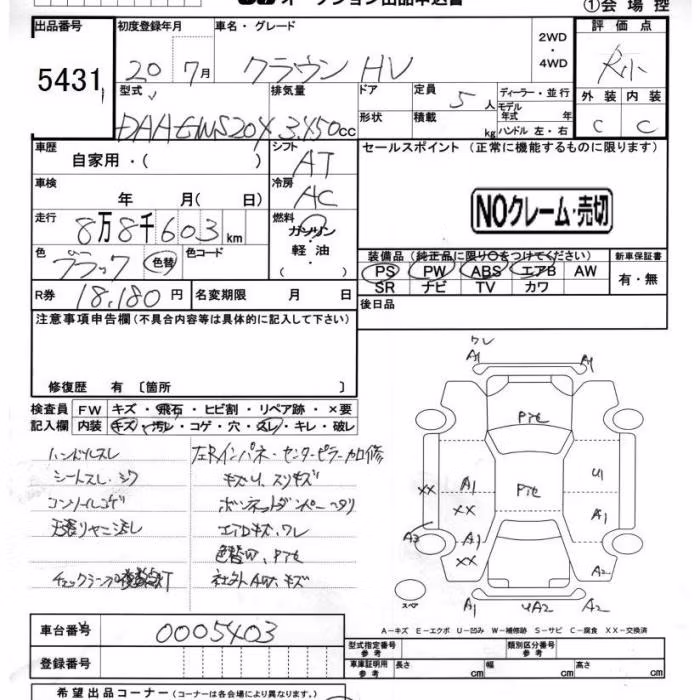 オークション出品申込書 ①会場控
出品番号 初度登録年月 車名・グレード 2WD・4WD 評価点
5431 20 7月 クラウン HV R小
型式 排気量 ドア 定員 5人 ディーラー・並行 外装 内装
DAA-GWS204 3,450cc 形状 積載 kg モデル年式 年 ハンドル 左・右 C C
車歴 シフト セールスポイント (正常に機能するものに限ります)
自家用・( ) AT
車検 冷房
年 月( 日) AC NOクレーム・売切
走行 燃料
8万8千603km ガソリン
軽油
( )
色 ブラック 色替 色コード
装備品 (純正品に限り○をつけてください) 新車保証書
PS PW ABS エアB AW 有・無
SR ナビ TV カワ
R券 18,180円 名変期限 月 日 後日品
注意事項申告欄 (不具合内容等は具体的に記入して下さい)
修復歴 有 〔箇所 〕
検査員 FW キズ・飛石・ヒビ割・リペア跡・×要
記入欄 内装 キズ・汚レ・コゲ・穴・スレ・キレ・破レ
ハンドルスレ
シートスレ・シワ
コンソールコゲ
左Rインパネ・センターピラー加修
キズU、スリキズ
エアロキズ、ワレ
色替 P1セ
社外AW、キズ
ワレ
A1 A1
P1セ
A1 P1セ U1
XX XX A1
A2 A1
XX A2
スペア A1 UA2 A2
A-キズ E-エクボ U-凹み W-補修跡 S-サビ C-腐食 XX-交換済
車台番号 0005403
登録番号
型式指定番号 参考 類別区分番号 参考
車庫証明用 参考 長さ cm 幅 cm 高さ cm
希望出品コーナー (コーナーは各会場により異なります。)